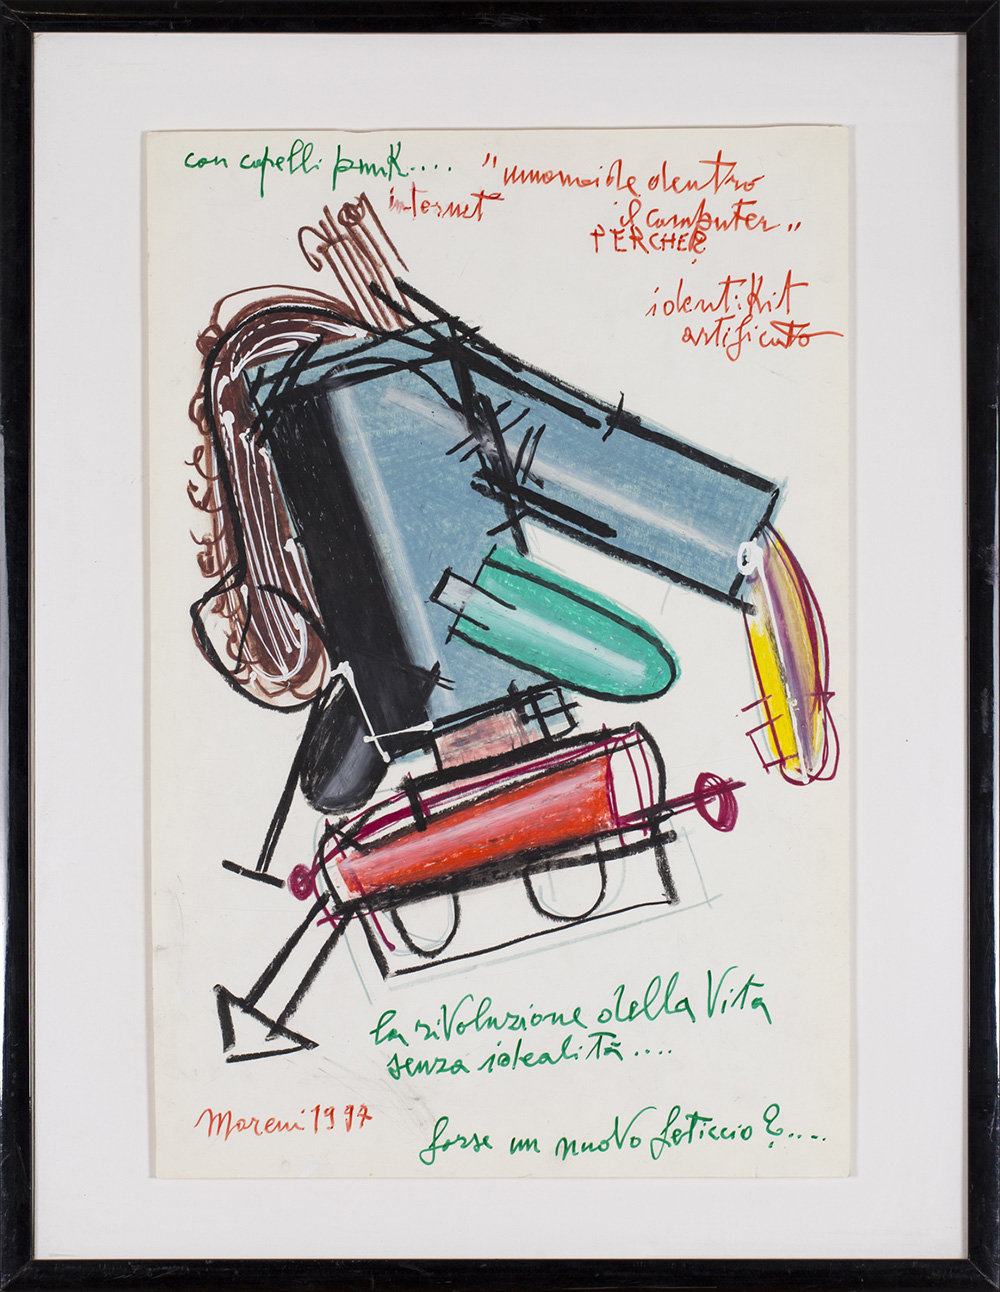 con capelli punk....
internet
"umanoide dentro
il computer"
PERCHE?
identikit
artificato
la rivoluzione della Vita
senza idealità....
forse un nuovo feticcio?....
Moreni 1997